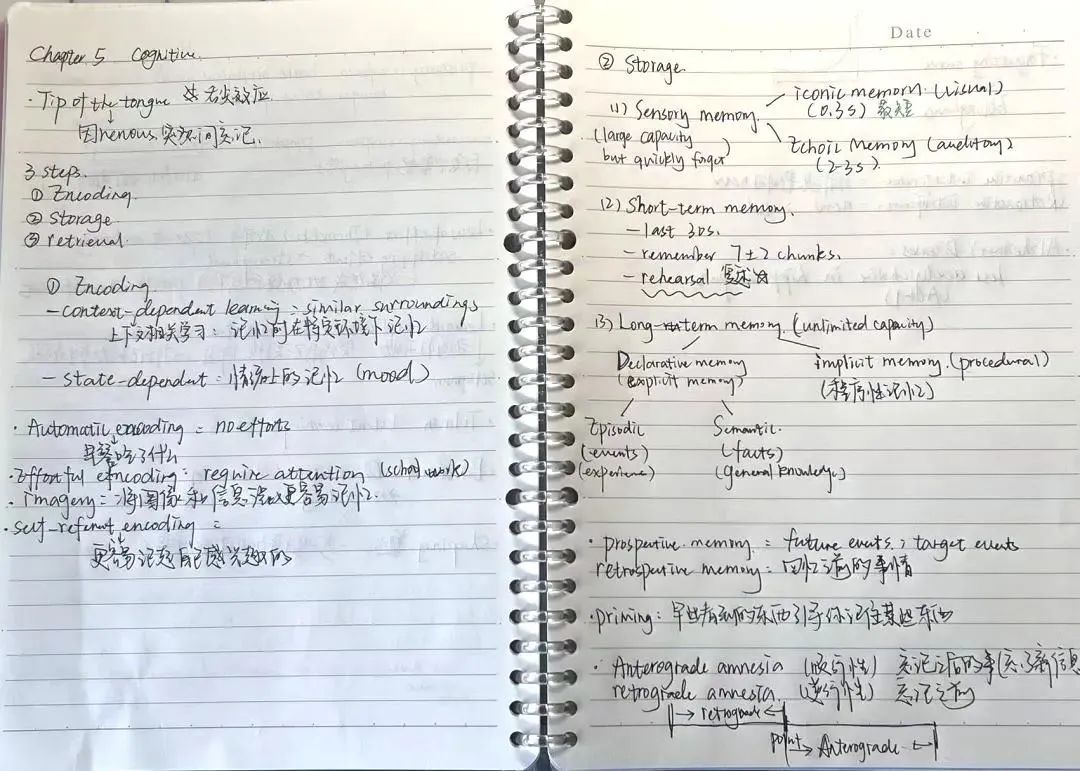 Chapter 5 Cognitive.
· Tip of the tongue 舌尖效应.
因nervous 突然间忘记.
3 steps.
① Encoding.
② Storage
③ retrieval.
① Encoding.
— context-dependent learning : similar surroundings
上下文相关学习: 记忆时在特定环境下记忆
— state-dependent : 情绪上的记忆 (mood)
· Automatic encoding = no efforts
早餐吃了什么
· Effortful encoding : require attention (school work)
· imagery = 将图像和信息 更容易记忆.
· self-referent encoding =
更容易记起自己感兴趣的
Date
② Storage.
(1) Sensory memory.
(large capacity
but quickly forget)
iconic memory. (visual)
(0.3s) 最短
Echoic Memory (auditory)
(2-3s).
(2) Short-term memory.
— last 30s.
— remember 7±2 chunks.
— rehearsal 复述
(3) Long-term memory. (unlimited capacity)
Declarative memory
(explicit memory)
implicit memory. (procedural)
(程序性记忆)
Episodic
(events)
(experience)
Semantic.
(facts)
(general knowledge)
· prospective memory. = future events. ; target events
retrospective memory : 回忆之前的事情
· priming : 早些看到的东西引导你记住某些东西
· Anterograde amnesia (顺行性) 忘记之后的事(忘了新信息
retrograde amnesia. (逆行性) 忘记之前
→ retrograde ←
point → Anterograde ←